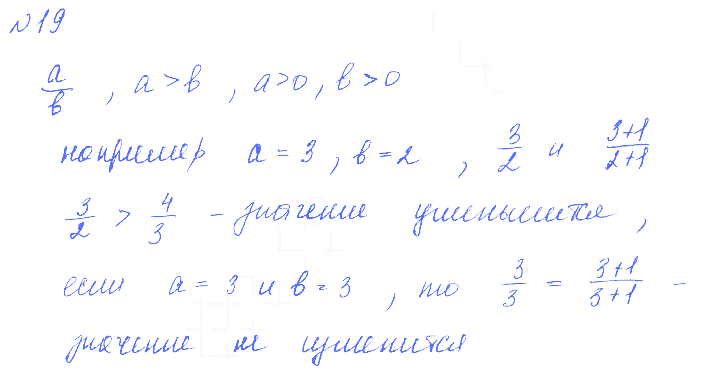 №19
a/b , a > b , a > 0 , b > 0
например a = 3 , b = 2 , 3/2 и 3+1/2+1
3/2 > 4/3 - значение уменьшится ,
если a = 3 и b = 3 , то 3/3 = 3+1/3+1 -
значение не изменится